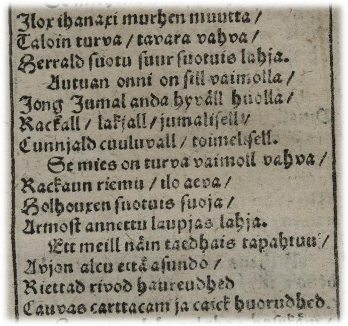 Ilox ihanaxi murhen muutta /
Taloin turva / tavara vahva /
Herrald suotu suur suotuis lahja.
Autuan onni on sill vaimolla /
Jong Jumal anda hyväll huolla /
Rackall / lakjall / jumalisell /
Cunnjald cuuluvall / toimelisell.
Se mies on turva vaimoll vahva /
Rackaun riemu / ilo aeva /
Holhouxen suotuis suoja /
Armost annettu laupjas lahja.
Ett meill näin taedhais tapahtuu /
Avjon alcu että asundo /
Riettad rivod haureudhed
Cauvas carttacam ja caick huorudhed.